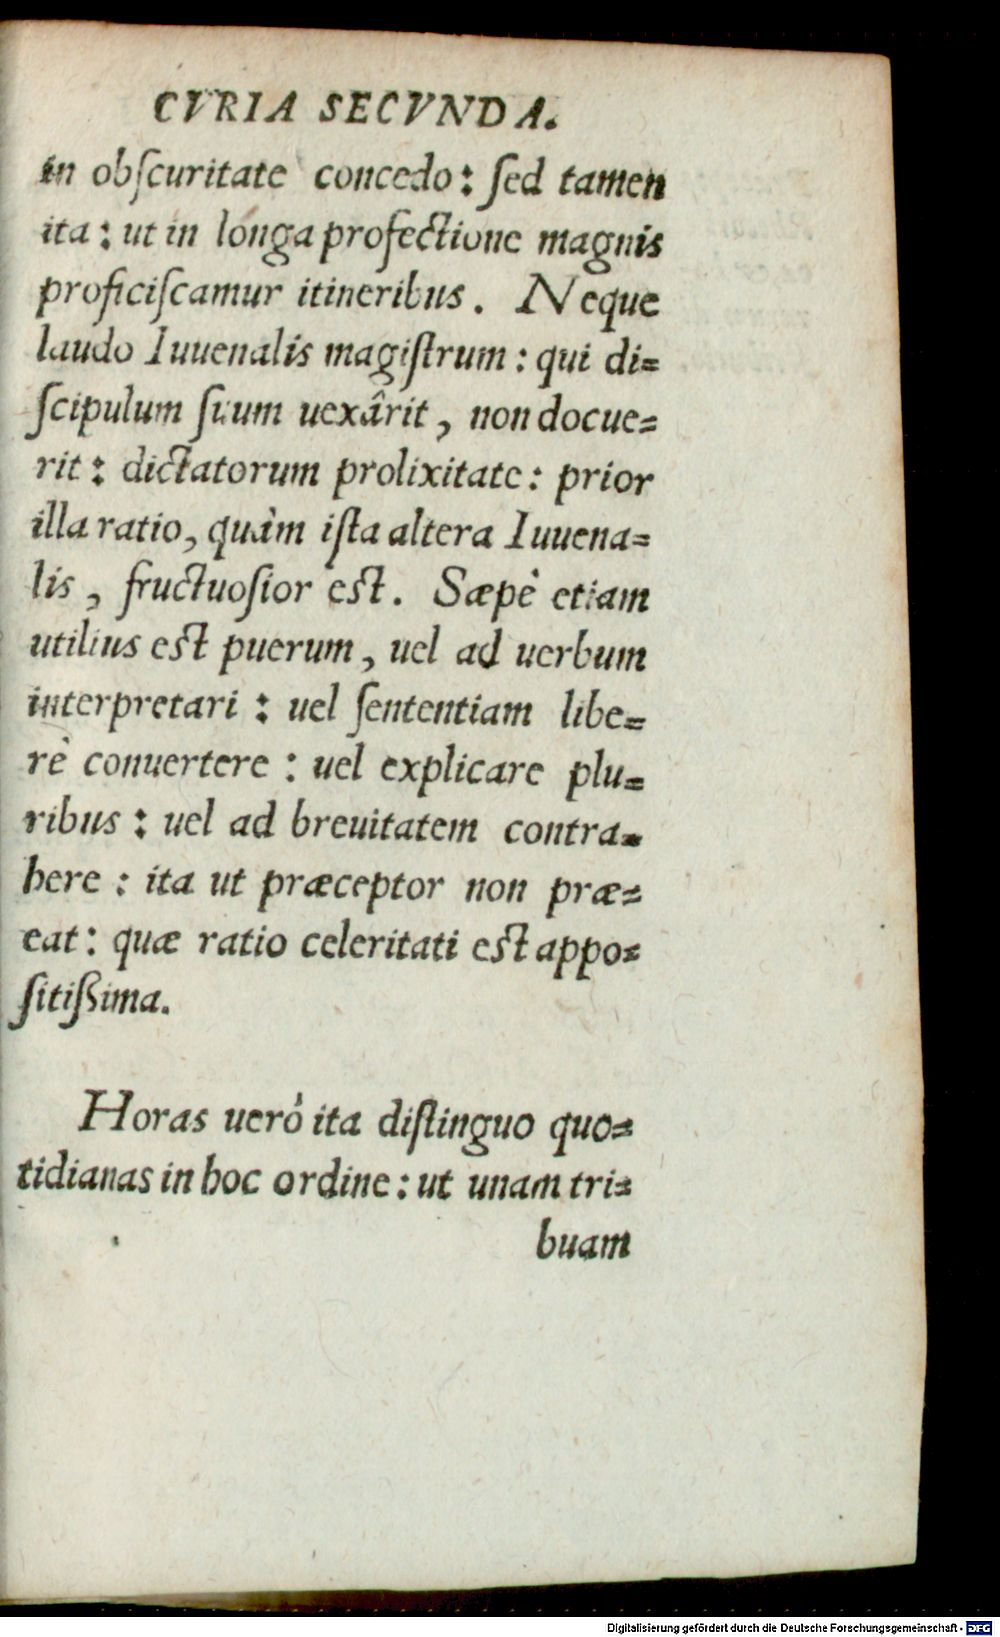 CVRIA SECVNDA.
in obſcuritate concedo: ſed tamen
ita: ut in longa profectione magnis
proficiſcamur itineribus. Neque
laudo Iuuenalis magiſtrum: qui di=
ſcipulum ſuum uexârit, non docue=
rit: dictatorum prolixitate: prior
illa ratio, quàm iſta altera Iuuena=
lis, fructuoſior eſt. Sæpè etiam
utilius eſt puerum, uel ad uerbum
interpretari: uel ſententiam libe=
rè conuertere: uel explicare plu=
ribus: uel ad breuitatem contra=
here: ita ut præceptor non præ=
eat: quæ ratio celeritati eſt appo=
ſitiſsima.
Horas uerò ita diſtinguo quo=
tidianas in hoc ordine: ut unam tri=
buam
Digitalisierung gefördert durch die Deutsche Forschungsgemeinschaft - DFG